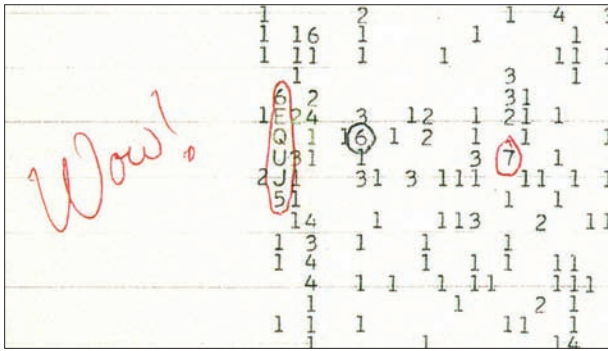 1 2 1 4
1 16 1 1 1
1 11 1 1 11
1 3 1
6 2 31
1 E 24 3 12 1 21 1
Q 1 16 1 2 1 1 1
Wow! U 31 1 3 7 1
2 J 1 31 3 111 11 1 1
5 1 1 1
14 1 113 2 11
1 3 1 1 1
1 4 1 1 1 11
4 1 1 1 11 111
1 1 2 1
1 1 1 11 1
1 1 14